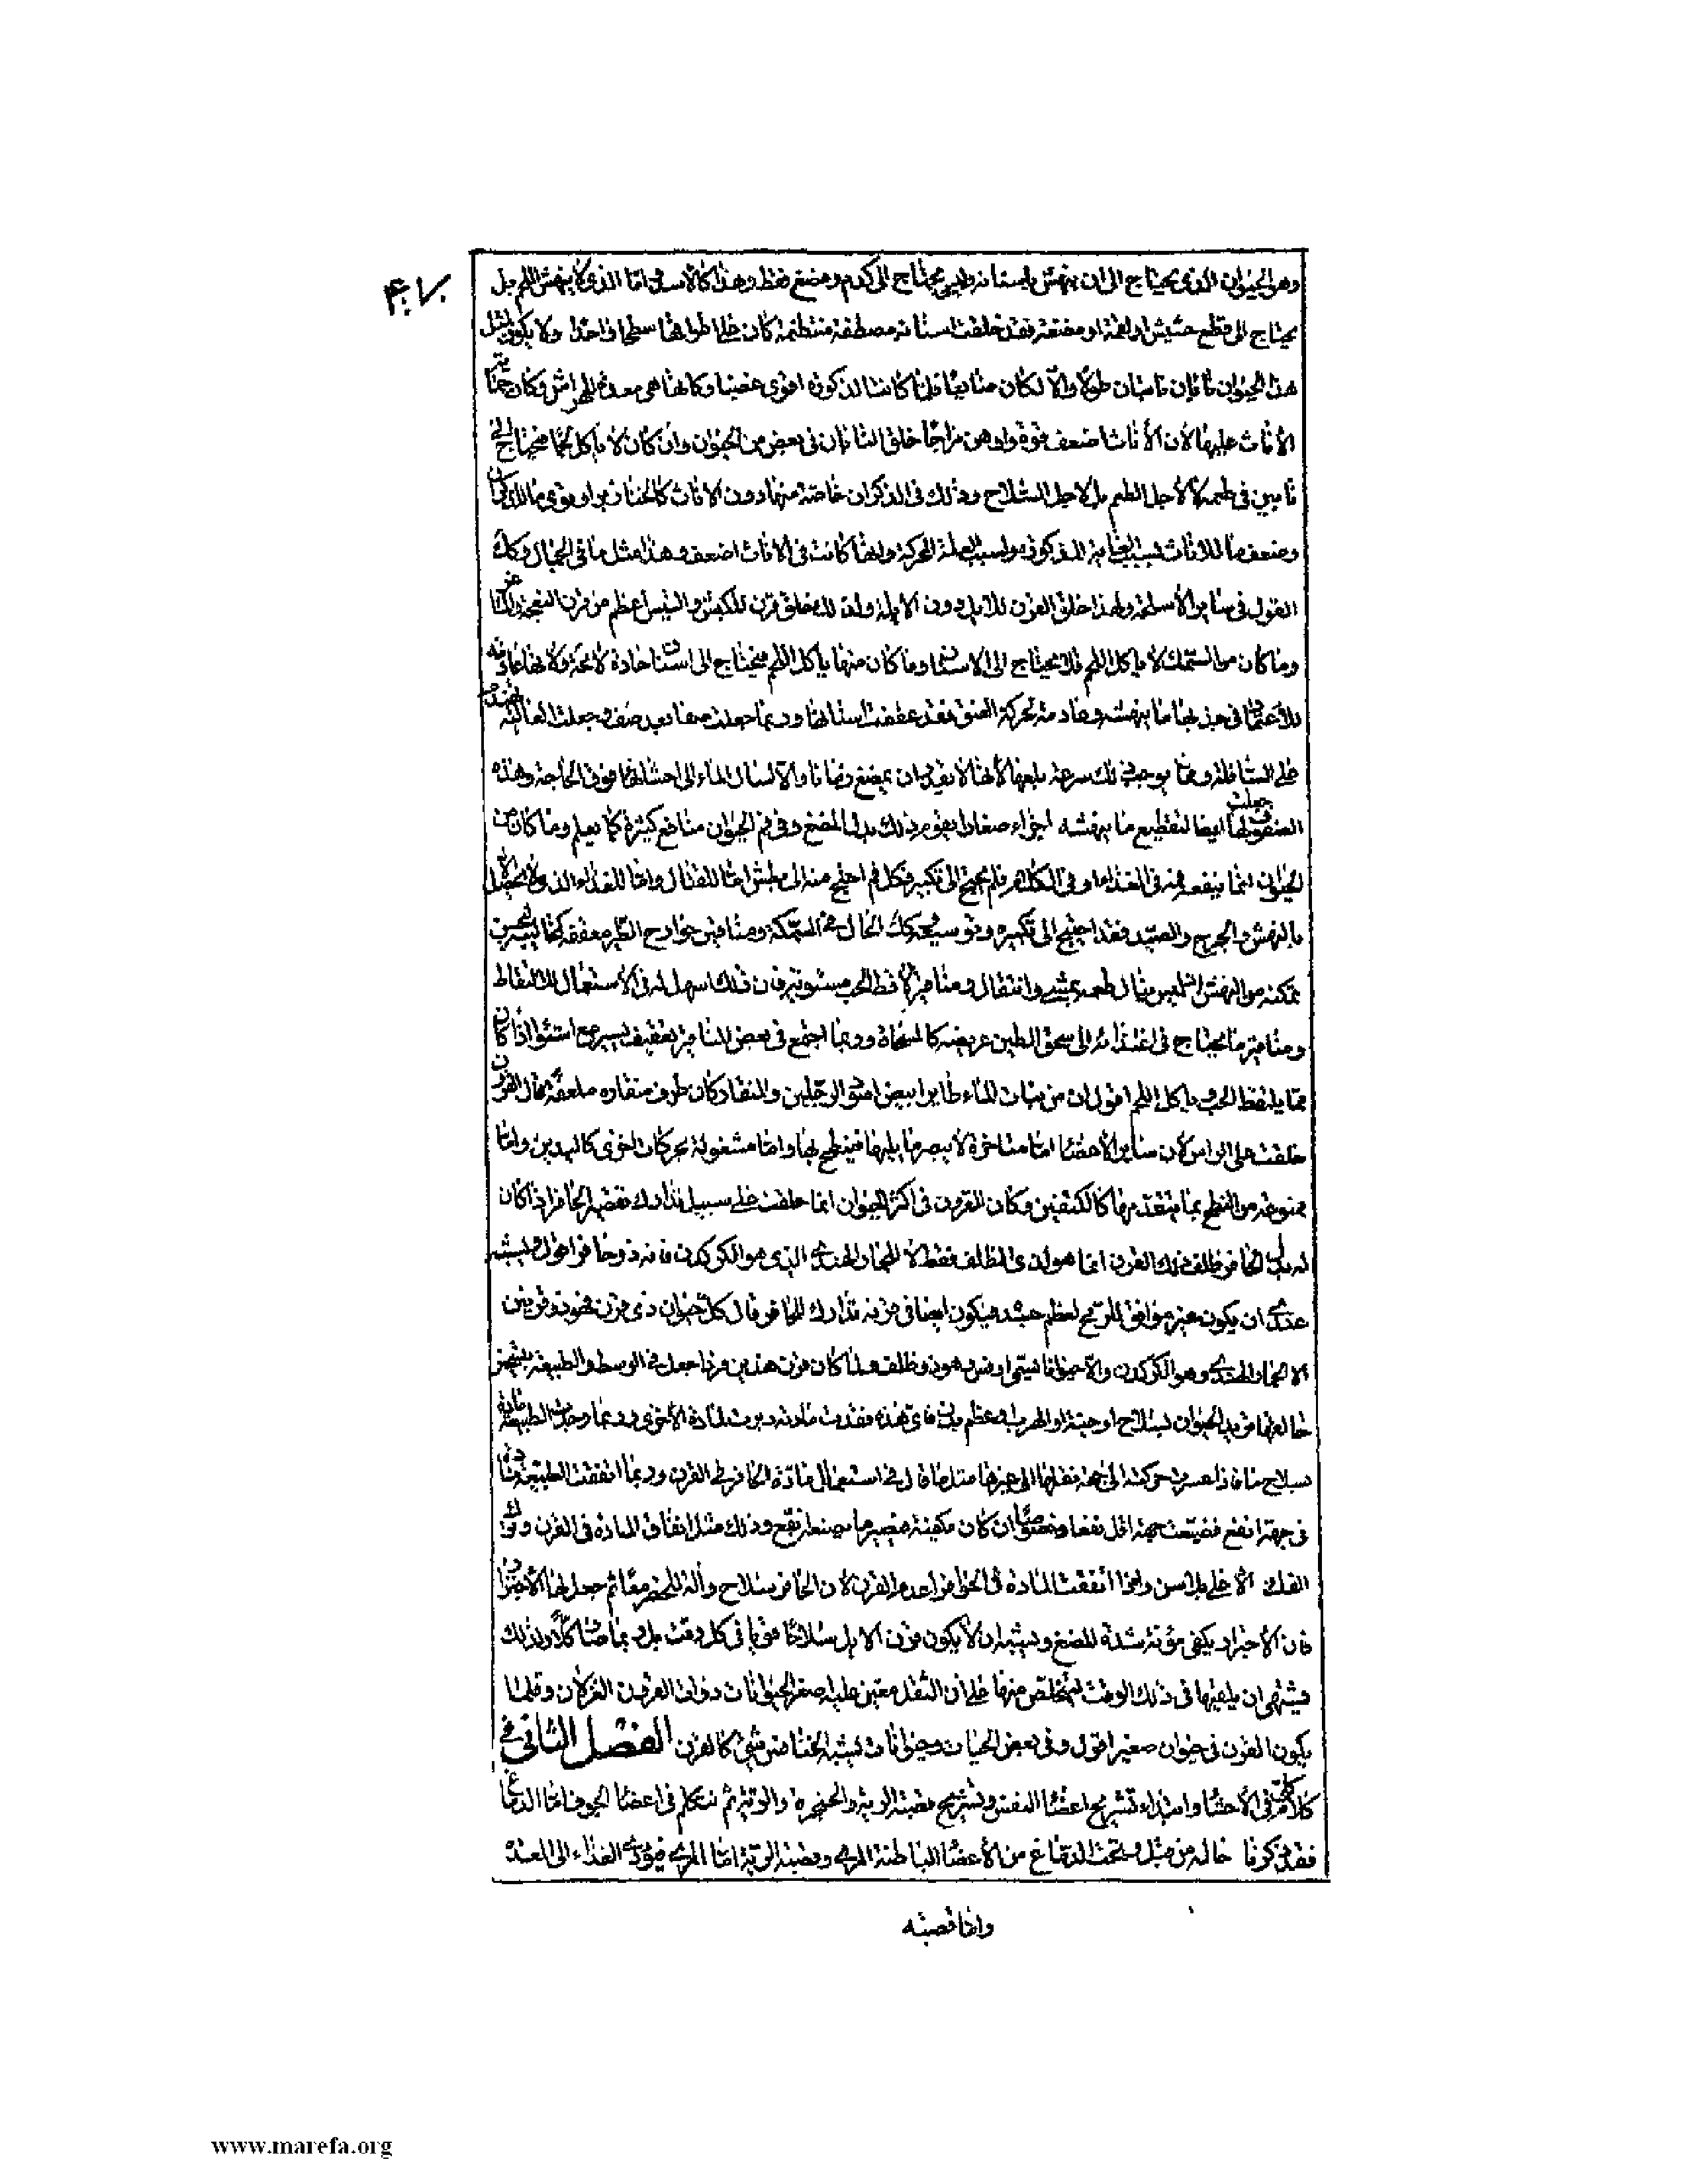 ۴۰۷
وهو الحيوان الذى يحتاج الى ان ينهش باسنانه وليس يحتاج الى كدم ومضغ فقط وهذا كالاسد واما الذى لا ينهش اللحم بل
يحتاج الى قطع حشيش او لقمة او مضغة فقد خلقت اسنانه مصطفة منتظمة كان على اطرافها سطحا واحدا ولا يكون لمثل
هذا الحيوان نابان ناتيان طولا والا لكان مانعا فلما كانت الذكورة اقوى غضبا وكانها هى معدة للهراش وكان
الاناث عليها لان الاناث اضعف قوة واوهن مزاجا خلق النابان فى بعض من الحيوان وان كان لا ياكل لحما فيحتاج الى
نابين فى طعمه لا لاجل الطعم بل لاجل السلاح وذلك فى الذكران خاصة منها دون الاناث كالخنازير او يقوى ما للذكران
وضعف ما للاناث لسبب العناية المذكورة ولسبب العلة المحركة وانها كانت فى الاناث اضعف وهذا مثل ما فى الجمال وكك
القول فى ساير الاسلحة ولهذا خلق القرن للايل دون الايلة ولذلك خلق قرن للكبش والتيس اعظم من قرن النعجة والعنز
وما كان من السمك لا ياكل اللحم فلا يحتاج الى الاسنان وما كان منها ياكل اللحم فيحتاج الى اسنان حادة لاحمة ولانها عادمة
للاعتماد فى جذبها ما ينهشه وعادمة لحركة العنق فقد عقفت اسنانها وربما جعلت صفا بعد صف وجعلت العالية
على السافلة ومما يوجب ذلك سرعة بلعها لانها لا يقدر ان يمضغ زمانا والا لسال الماء الى احشائها فوق الحاجة وهذه
الصفوف جعلت لها ايضا لتقطيع ما ينهشه اجزاء صغارا يقوم ذلك بدل المضغ وفى فم الحيوان منافع كثيرة كما يعلم وما كان من
الحيوان انما ينفعه فمه فى الغذاء او فى الكلام فلم يحتج الى تكبير فكل فم احتيج منه الى بطش اما للقتال واما للغذاء الذى
بالنهش والجرح والصيد فقد احتيج الى تكبيره وتوسيعه وكك الحال فى السمكة ومناقير جوارح الطير معقفة كمخالبها
تمكنه من النهش الذى ينال طعمه بمشى وانتقال ومناقير لاقط الحب مستوية فان ذلك اسهل له فى الاستعمال للالتقاط
ومناقير ما يحتاج فى اغتذائه الى سحق الطين عريضة كالمسحاة وربما اجتمع فى بعض المناقير تعقيف يسير مع استواء اذا كان
مما يلتقط الحب وياكل اللحم اقول ان من بنات الماء طايرا ابيض اسود الرجلين والمنقار كان طرف منقاره ملعقة قال القرون
خلقت على الراس لان ساير الاعضاء اما متاخرة لا يبصر ما يليها فينطح بها واما مشغولة بحركات اخرى كاليدين واما
ممنوعة من النطح بما يتقدمها كالكتفين وكان القرون فى اكثر الحيوان انما خلقت على سبيل تدارك نقص الحافر اذا كان
له بدل الحافر ظلف فذلك القرن انما هو لذى الظلف فقط الا للحمار الهندى الذى هو الكركدن فانه ذو حافر اقول يشبه
عندى ان يكون غير موافق للرمح لعظم جسده فيكون ايضا فى قرنه تدارك للحافر قال كل حيوان ذى قرن فهو ذو قرنين
الا الحمار الهندى وهو الكركدن والا حيوانا يسمى اوقس وهو ذو ظلف ولما كان قرن هذين فردا جعل فى الوسط والطبيعة
خالقها مزيد الحيوان بسلاح او جثة او الهرب او عظم بدن فاى هذه فقدت مادته دبرت لمادة الاخرى وربما وجدت الطبيعة مادة
سلاح ما فاذا عسرت حركته الى جهة نقلها الى غيرها مثل ما قال فى استعمال مادة الحافر فى القرن وربما انفقت الطبيعة مادة
فى جهة انفع فضيعت جهة اقل نفعا ان كان مكنة فيصيرها بصنعة نفع وذلك مثل انفاق المادة فى القرن وترك
الفك الاعلى بلا سن واذا انفقت المادة فى الحوافر اعدم القرن لان الحافر سلاح والة للحضر معا ثم جعل لها الاجترار
فان الاجترار يكفى مؤنة شدة المضغ ويشبه ان لا يكون قرن الايل سلاحا قويا فى كل وقت بل ربما صار كلا ولذلك
فيشتهى ان يلقيها فى ذلك الوقت ليتخلص منها على ان الثقل معين عليه اصغر الحيوانات ذوات القرون الغزلان وقلما
يكون القرن فى حيوان صغير اقول وفى بعض الحيات وحيوانات يشبه الخنافس شئ كالقرن الفصل الثانى فى
كلام كلى فى الاحشاء وابتداء تشريح اعضاء النفس وتشريح قصبة الرية والحنجرة والرية ثم نتكلم فى اعضاء الجوف اما الدماغ
فقد ذكرنا حاله من قبل وتحت الدماغ من الاعضاء الباطنة المرى وقصبة الرية اما المرى فيؤدى الغذاء الى المعدة
واما قصبة
www.marefa.org